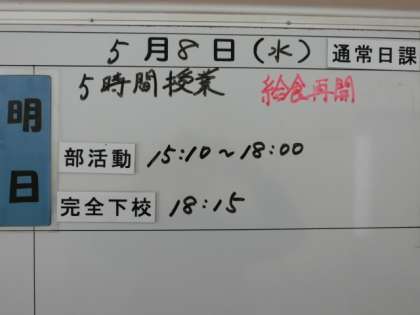 5月8日(水) 通常日課
明日
5時間授業 給食再開
部活動 15:10~18:00
完全下校 18:15